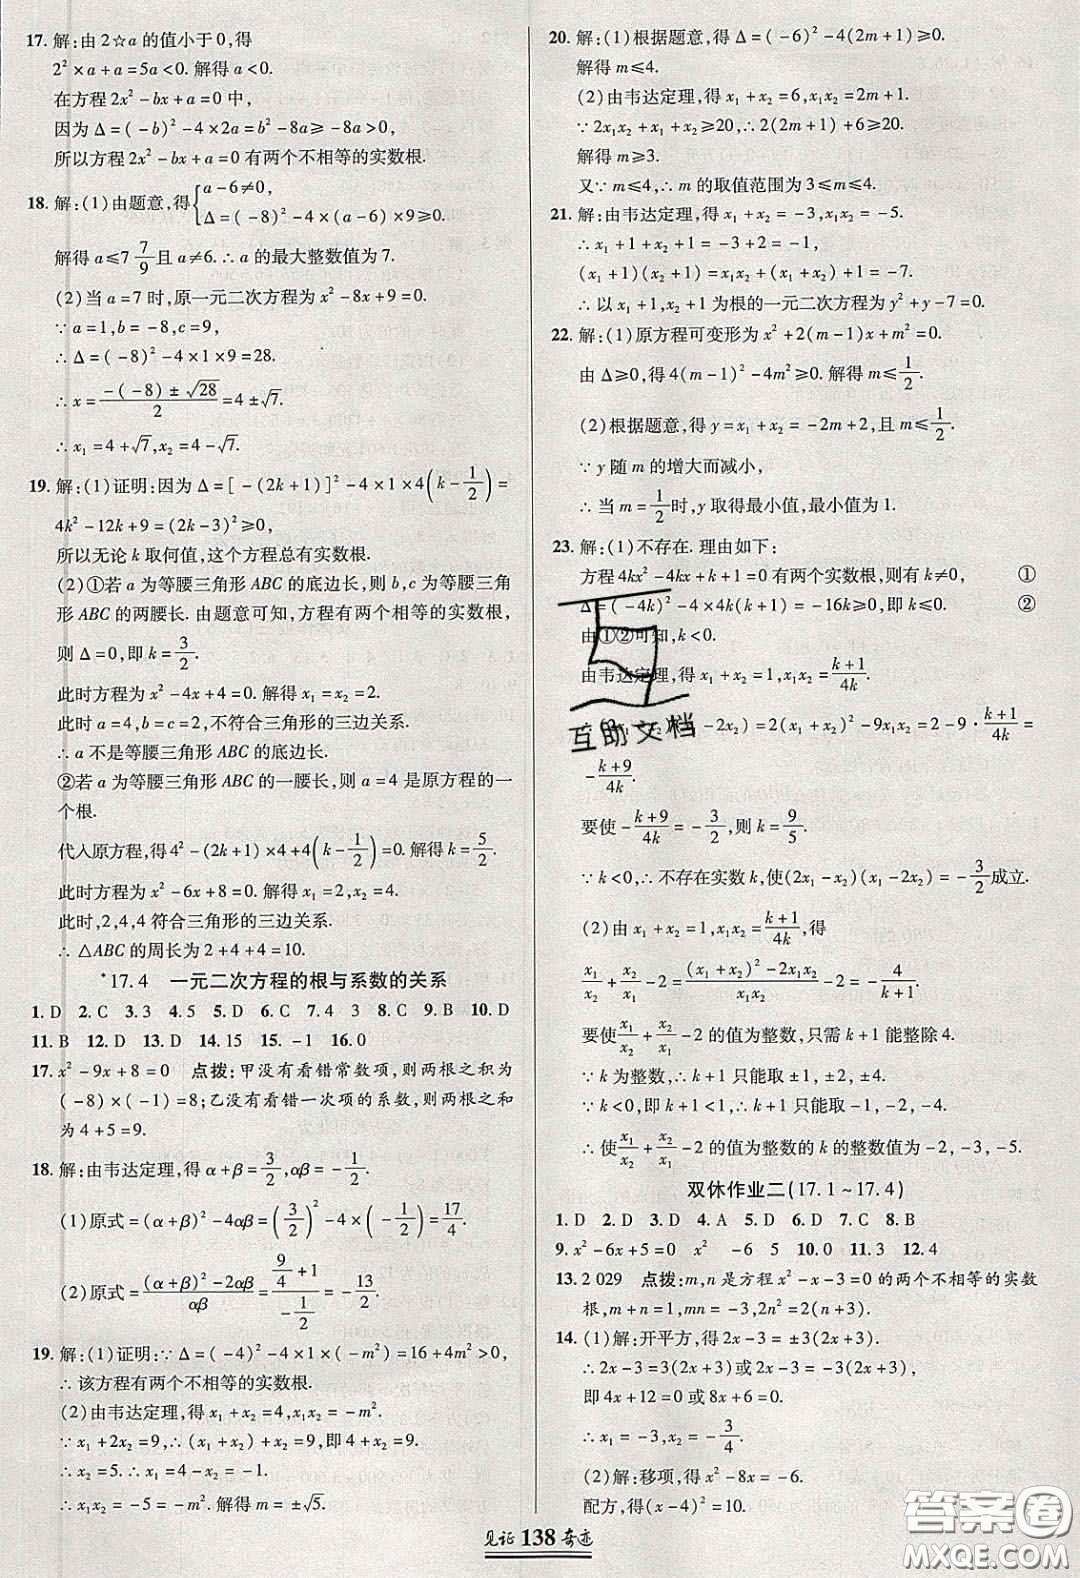 17. 解:由 2☆a 的值小于 0,得
2²×a+a=5a<0. 解得 a<0.
在方程 2x²-bx+a=0 中,
因为 Δ=(-b)²-4×2a=b²-8a≥-8a>0,
所以方程 2x²-bx+a=0 有两个不相等的实数根.
18. 解:(1)由题意,得{a-6≠0,
Δ=(-8)²-4×(a-6)×9≥0.
解得 a≤7 7/9 且 a≠6. ∴a 的最大整数值为 7.
(2)当 a=7 时,原一元二次方程为 x²-8x+9=0.
∵a=1,b=-8,c=9,
∴Δ=(-8)²-4×1×9=28.
∴x=(-(-8)±√28)/2=4±√7.
∴x₁=4+√7,x₂=4-√7.
19. 解:(1)证明:因为 Δ=[-(2k+1)]²-4×1×4(k-1/2)=
4k²-12k+9=(2k-3)²≥0,
所以无论 k 取何值,这个方程总有实数根.
(2)①若 a 为等腰三角形 ABC 的底边长,则 b,c 为等腰三角
形 ABC 的两腰长. 由题意可知,方程有两个相等的实数根,
则 Δ=0,即 k=3/2.
此时方程为 x²-4x+4=0. 解得 x₁=x₂=2.
此时 a=4,b=c=2,不符合三角形的三边关系.
∴a 不是等腰三角形 ABC 的底边长.
②若 a 为等腰三角形 ABC 的一腰长,则 a=4 是原方程的一
个根.
代入原方程,得 4²-(2k+1)×4+4(k-1/2)=0. 解得 k=5/2.
此时方程为 x²-6x+8=0. 解得 x₁=2,x₂=4.
此时,2,4,4 符合三角形的三边关系.
∴△ABC 的周长为 2+4+4=10.
*17.4 一元二次方程的根与系数的关系
1. D 2. C 3. 3 4. 5 5. D 6. C 7. 4 3 8. C 9. B 10. D
11. B 12. D 13. D 14. 15 15. -1 16. 0
17. x²-9x+8=0 点拨:甲没有看错常数项,则两根之积为
(-8)×(-1)=8;乙没有看错一次项的系数,则两根之和
为 4+5=9.
18. 解:由韦达定理,得 α+β=3/2,αβ=-1/2.
(1)原式=(α+β)²-4αβ=(3/2)²-4×(-1/2)=17/4.
(2)原式=((α+β)²-2αβ)/αβ=(9/4+1)/(-1/2)=-13/2.
19. 解:(1)证明:∵Δ=(-4)²-4×1×(-m²)=16+4m²>0,
∴该方程有两个不相等的实数根.
(2)由韦达定理,得 x₁+x₂=4,x₁x₂=-m².
∵x₁+2x₂=9,∴(x₁+x₂)+x₂=9,即 4+x₂=9.
∴x₂=5. ∴x₁=4-x₂=-1.
∴x₁x₂=-5=-m². 解得 m=±√5.
20. 解:(1)根据题意,得 Δ=(-6)²-4(2m+1)≥0.
解得 m≤4.
(2)由韦达定理,得 x₁+x₂=6,x₁x₂=2m+1.
∵2x₁x₂+x₁+x₂≥20,∴2(2m+1)+6≥20.
解得 m≥3.
又∵m≤4,∴m 的取值范围为 3≤m≤4.
21. 解:由韦达定理,得 x₁+x₂=-3,x₁x₂=-5.
∴x₁+1+x₂+1=-3+2=-1,
(x₁+1)(x₂+1)=x₁x₂+(x₁+x₂)+1=-7.
∴以 x₁+1,x₂+1 为根的一元二次方程为 y²+y-7=0.
22. 解:(1)原方程可变形为 x²+2(m-1)x+m²=0.
由 Δ≥0,得 4(m-1)²-4m²≥0. 解得 m≤1/2.
(2)根据题意,得 y=x₁+x₂=-2m+2,且 m≤1/2.
∵y 随 m 的增大而减小,
∴当 m=1/2 时,y 取得最小值,最小值为 1.
23. 解:(1)不存在. 理由如下:
方程 4kx²-4kx+k+1=0 有两个实数根,则有 k≠0, ①
Δ=(-4k)²-4×4k(k+1)=-16k≥0,即 k≤0. ②
由①②可知,k<0.
由韦达定理,得 x₁+x₂=1,x₁x₂=(k+1)/4k.
-2x₂)=2(x₁+x₂)²-9x₁x₂=2-9·(k+1)/4k=
-(k+9)/4k.
要使-(k+9)/4k=-3/2,则 k=9/5.
∵k<0,∴不存在实数 k,使(2x₁-x₂)(x₁-2x₂)=-3/2成立.
(2)由 x₁+x₂=1,x₁x₂=(k+1)/4k,得
x₁/x₂+x₂/x₁-2=((x₁+x₂)²-2x₁x₂)/x₁x₂-2=-4/(k+1).
要使x₁/x₂+x₂/x₁-2 的值为整数,只需 k+1 能整除 4.
∵k 为整数,∴k+1 只能取±1,±2,±4.
∵k<0,即 k+1<1,∴k+1 只能取-1,-2,-4.
∴使x₁/x₂+x₂/x₁-2 的值为整数的 k 的整数值为-2,-3,-5.
双休作业二(17.1~17.4)
1. D 2. D 3. D 4. A 5. D 6. D 7. C 8. B
9. x²-6x+5=0 x² -6 5 10. 0 11. 3 12. 4
13. 2 029 点拨:m,n 是方程 x²-x-3=0 的两个不相等的实数
根,m+n=1,mn=-3,2n²=2(n+3).
14. (1)解:开平方,得 2x-3=±3(2x+3).
∴2x-3=3(2x+3)或 2x-3=-3(2x+3),
即 4x+12=0 或 8x+6=0.
∴x₁=-3,x₂=-3/4.
(2)解:移项,得 x²-8x=-6.
配方,得(x-4)²=10.
互助文档
见证 138 奇迹
答案圈
MXQE.COM